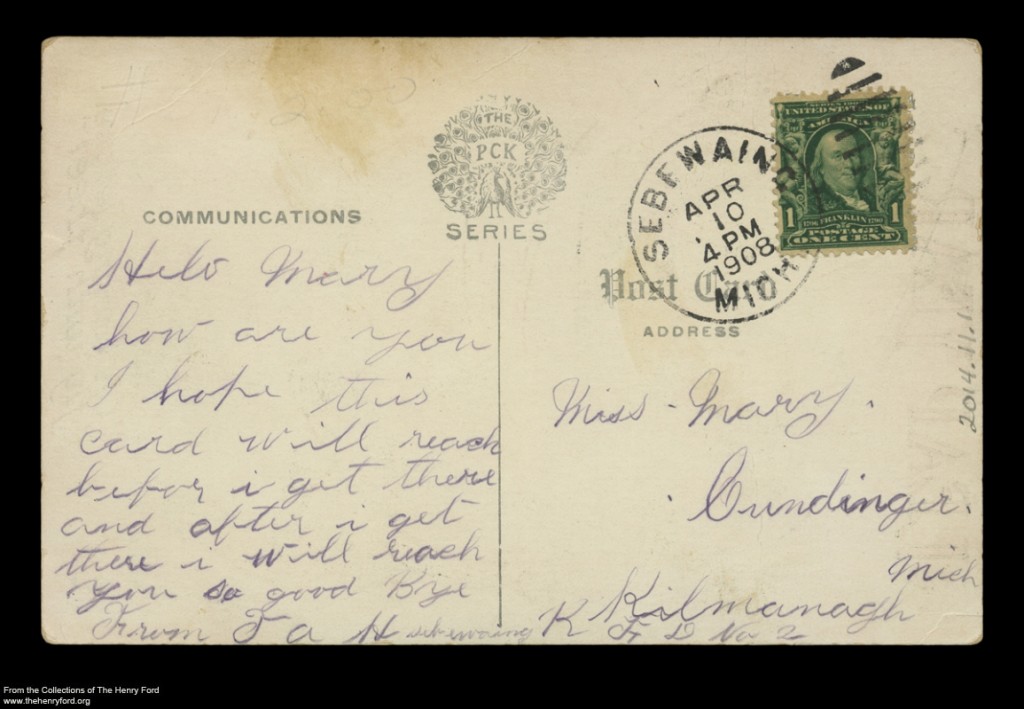 THE
PCK
SERIES
COMMUNICATIONS
Helo Mary
how are you
I hope this
card will reach
befor i get there
and after i get
there i will reach
you so good Bye
From J a H sebewaing
SEBEWAING
APR
10
4 PM
1908
MICH
UNITED STATES OF
AMERICA
1 FRANKLIN 1
POSTAGE
ONE CENT
Post Card
ADDRESS
Miss Mary.
Cundinger.
Mich
Kilmanagh
R F D No 2
2014.11.1
From the Collections of The Henry Ford
www.thehenryford.org